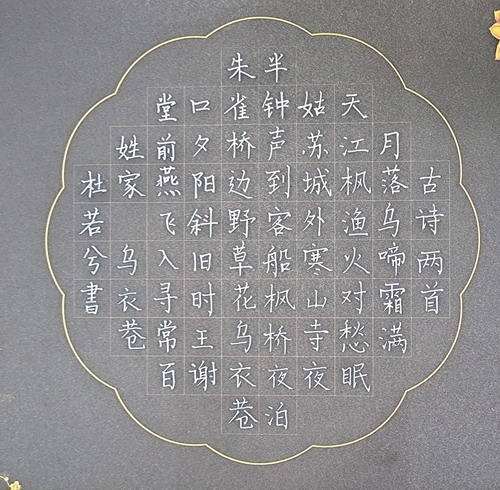 古诗两首
月落乌啼霜满
天江枫渔火对愁眠
姑苏城外寒山寺夜
半钟声到客船枫桥夜泊
朱雀桥边野草花乌衣巷
口夕阳斜旧时王谢
堂前燕飞入寻常百
姓家 乌衣巷
杜若兮書